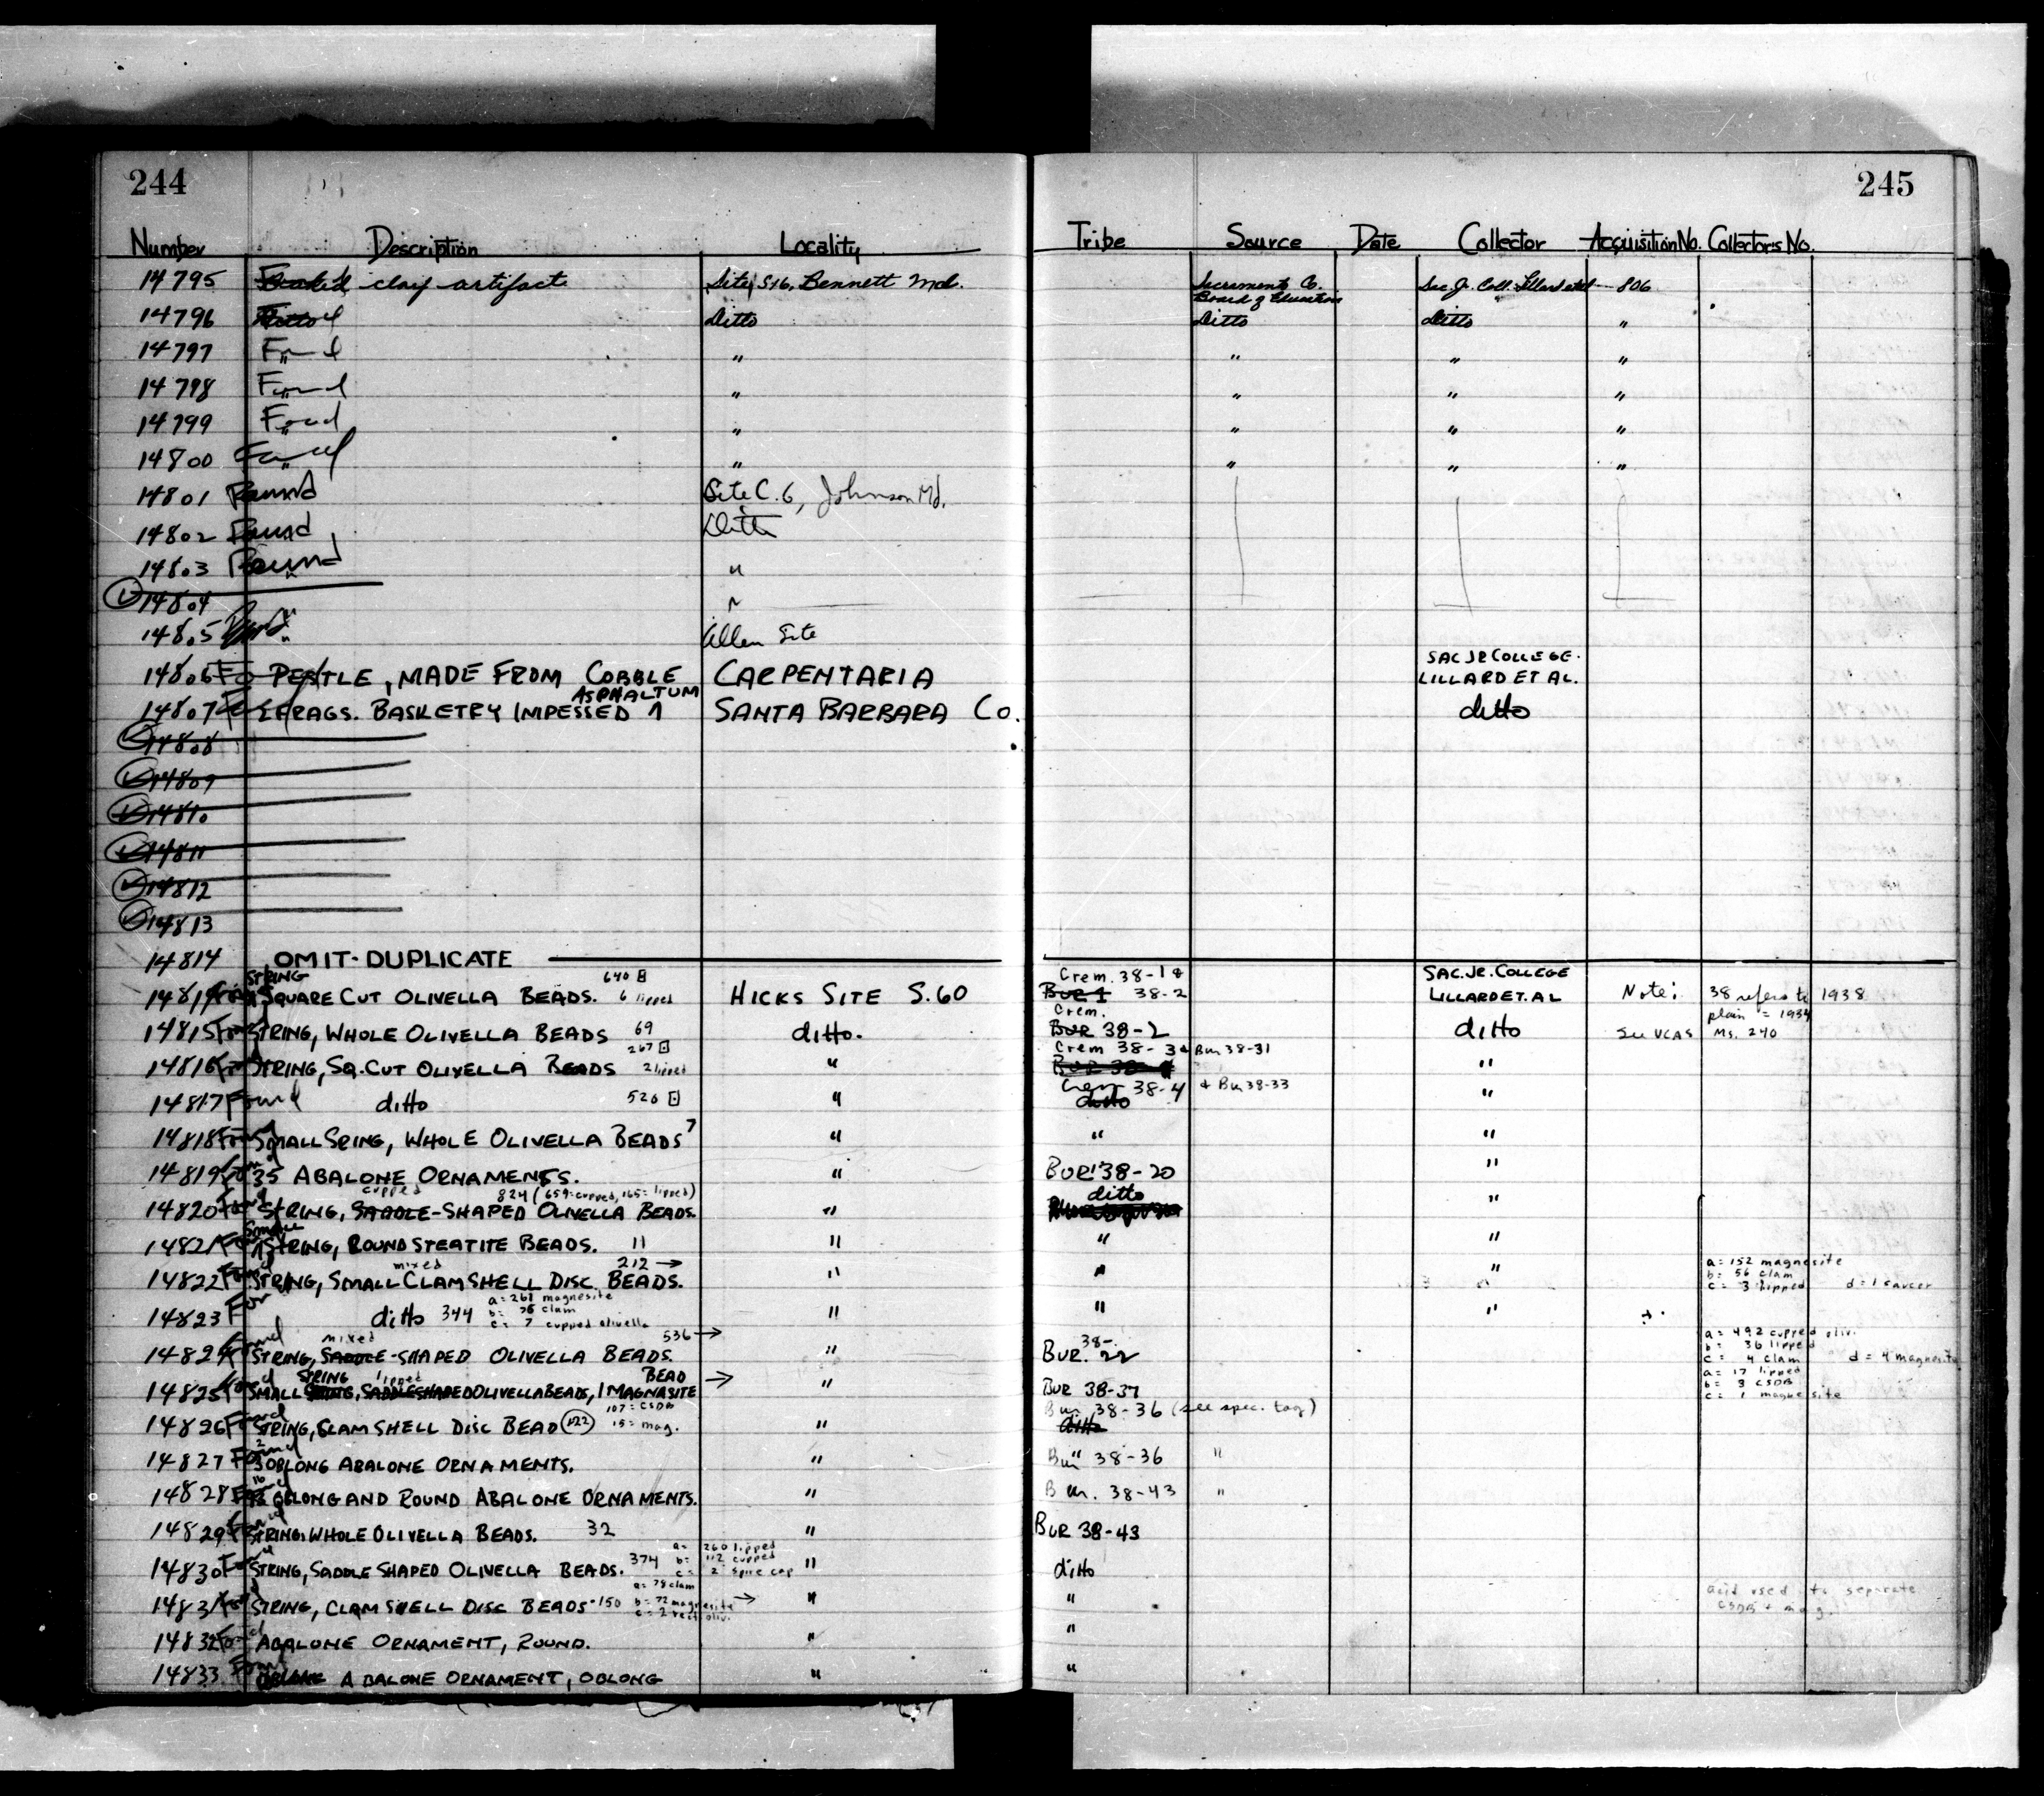 244
245
Number Description Locality Tribe Source Date Collector Acquisition No. Collector's No.
14795 clay artifact Site S.16, Bennett Md. Sacramento Co. Board of Education Sac. Jr. Coll. Lillard et al 806
14796 Ditto Ditto Ditto ditto "
14797 Found " " " " "
14798 Found " " " " "
14799 Found " " " " "
14800 Found " " " " "
14801 Found Site C.6, Johnson Md.
14802 Found Ditto
14803 Found " "
14804 " "
14805 " Allen Site
14806 PESTLE, MADE FROM COBBLE CARPENTARIA SAC JR COLLEGE. LILLARD ET AL.
14807 FRAGS. BASKETRY IMPESSED ASPHALTUM SANTA BARBARA Co. ditto
14808
14809
14810
14811
14812
14813
14814 OMIT-DUPLICATE
14814 Found STRING SQUARE CUT OLIVELLA BEADS. 640 6 lipped HICKS SITE S.60 Crem. 38-1 & BUR 1 38-2 SAC. JR. COLLEGE LILLARD ET. AL Note: 38 refers to 1938
plain = 1934
14815 Found STRING, WHOLE OLIVELLA BEADS 69 ditto. Crem. BUR 38-2 ditto See UCAS Ms. 240
14816 Found STRING, SQ. CUT OLIVELLA BEADS 267 2 lipped " Crem 38-3 & Bur 38-31 "
14817 Found ditto 526 " Crem 38-4 ditto & Bur 38-33 "
14818 Found SMALL SRING, WHOLE OLIVELLA BEADS 7 " " "
14819 Found 35 ABALONE ORNAMENTS. " BUR 38-20 "
14820 Found STRING, SADDLE-SHAPED OLIVELLA BEADS. cupped 824 (659=cupped, 165= lipped) " ditto "
14821 Found Small STRING, ROUND STEATITE BEADS. 11 " " "
14822 Found STRING, SMALL CLAM SHELL DISC BEADS. mixed 212 → " " " a = 152 magnesite
b = 56 clam
c = 3 lipped d = 1 saucer
14823 Found ditto 344 a = 261 magnesite
b = 76 clam
c = 7 cupped olivella " " "
14824 Found STRING, SADDLE-SHAPED OLIVELLA BEADS. mixed 536 → " BUR. 38-22 a = 492 cupped oliv.
b = 36 lipped
c = 4 clam d = 4 magnesite
14825 Found SMALL STRING, SADDLE SHAPED OLIVELLA BEADS, 1 MAGNASITE BEAD lipped → " BUR 38-37 a = 17 lipped
b = 3 CSDB
c = 1 magnesite
14826 Found STRING, CLAM SHELL DISC BEAD 122 107 = CSDB 15 = mag. " Bur 38-36 (see spec. tag) ditto
14827 Found OBLONG ABALONE ORNAMENTS. " Bur 38-36 "
14828 Found OBLONG AND ROUND ABALONE ORNAMENTS. " Bur. 38-43 "
14829 Found STRING. WHOLE OLIVELLA BEADS. 32 " BUR 38-43
14830 Found STRING, SADDLE SHAPED OLIVELLA BEADS. 374 a = 260 lipped
b = 112 cupped
c = 2 spire cap " ditto
14831 Found STRING, CLAM SHELL DISC BEADS-150 a = 78 clam
b = 72 magnesite
c = 2 rect. oliv. → " " acid used to separate
CSDB + mag.
14832 Found ABALONE ORNAMENT, ROUND. " "
14833 Found ABALONE ORNAMENT, OBLONG " "